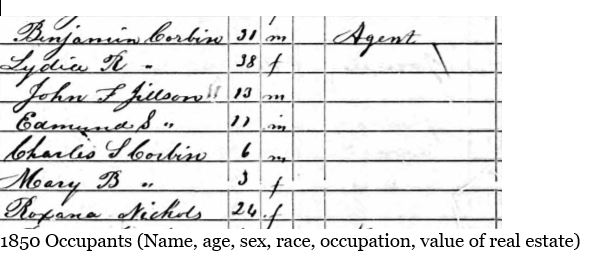 Benjamin Corbin 31 m Agent
Lydia R " 38 f
John F Jillson 13 m
Edmund S " 11 m
Charles S Corbin 6 m
Mary B " 3 f
Roxana Nichols 24 f
1850 Occupants (Name, age, sex, race, occupation, value of real estate)